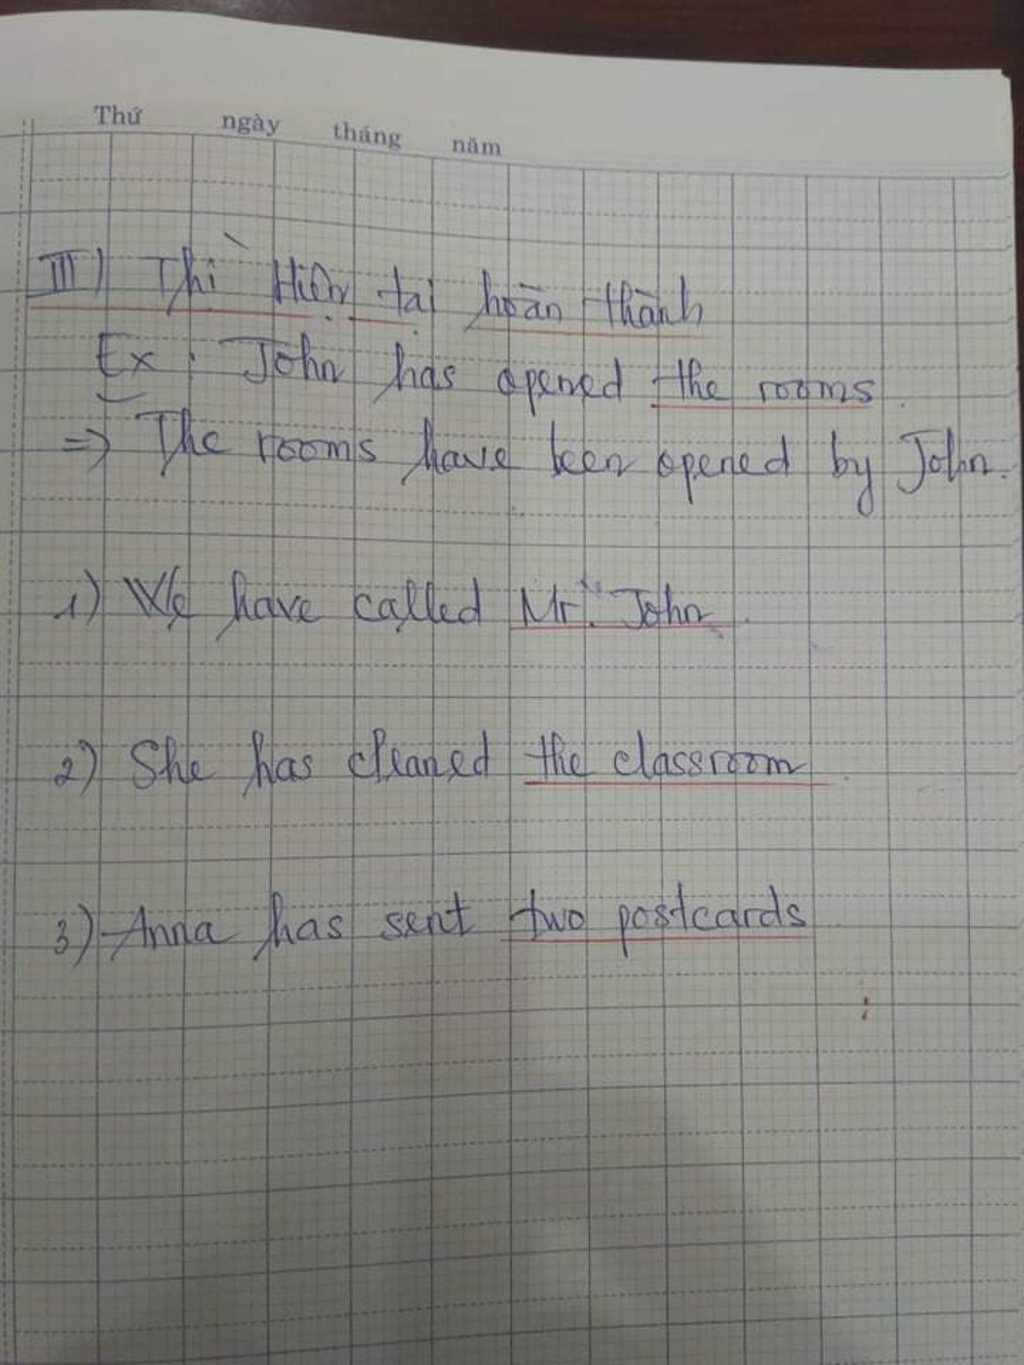 Thứ ngày tháng năm
III) Thì Hiện tại hoàn thành
Ex : John has opened the rooms.
=> The rooms have been opened by John.
1) We have called Mr. John.
2) She has cleaned the classroom.
3) Anna has sent two postcards